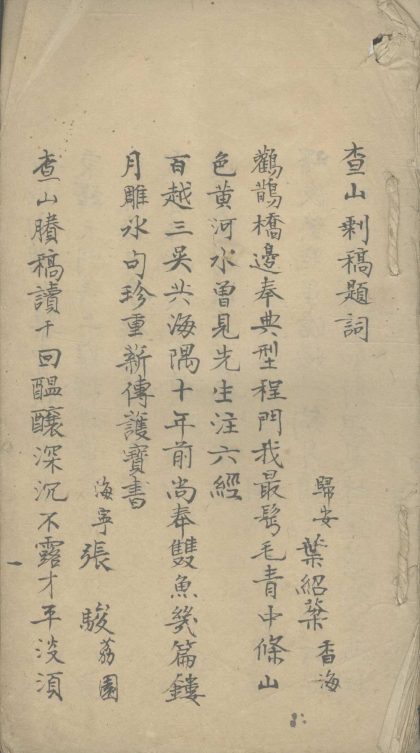 查山剩稿題詞
歸安葉紹棻香海
鸛鵲橋邊奉典型程門我最髩毛青中條山
色黄河水曽見先生注六經
百越三吴共海隅十年前尚奉雙魚幾篇鏤
月雕氷句珍重薪傳護寳書
海寧張駿荔園
查山賸稿讀千回醖釀深沉不露才平淡須